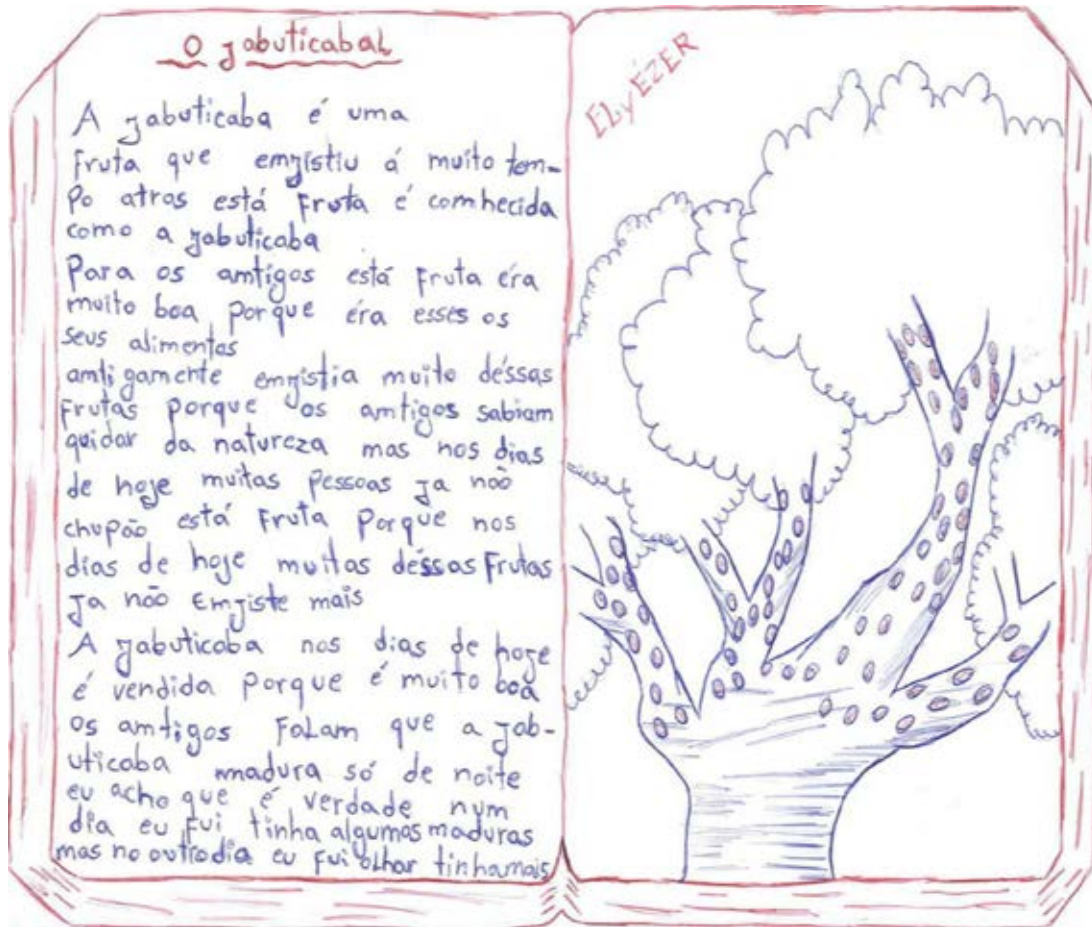 O jabuticabal
A jabuticaba é uma
fruta que emxistiu á muito tem-
po atras está fruta é comhecida
como a jabuticaba
Para os amtigos está fruta éra
muito boa porque éra esses os
seus alimentos
amtigamente emxistia muito déssas
frutas porque os amtigos sabiam
quidar da natureza mas nos dias
de hoje muitas pessoas ja não
chupão está fruta porque nos
dias de hoje muitas déssas frutas
ja não emxiste mais
A jabuticaba nos dias de hoje
é vendida porque é muito boa
os amtigos falam que a jab-
uticaba madura só de noite
eu acho que é verdade num
dia eu fui tinha algumas maduras
mas no outro dia eu fui olhar tinha mais
ELyÉZER